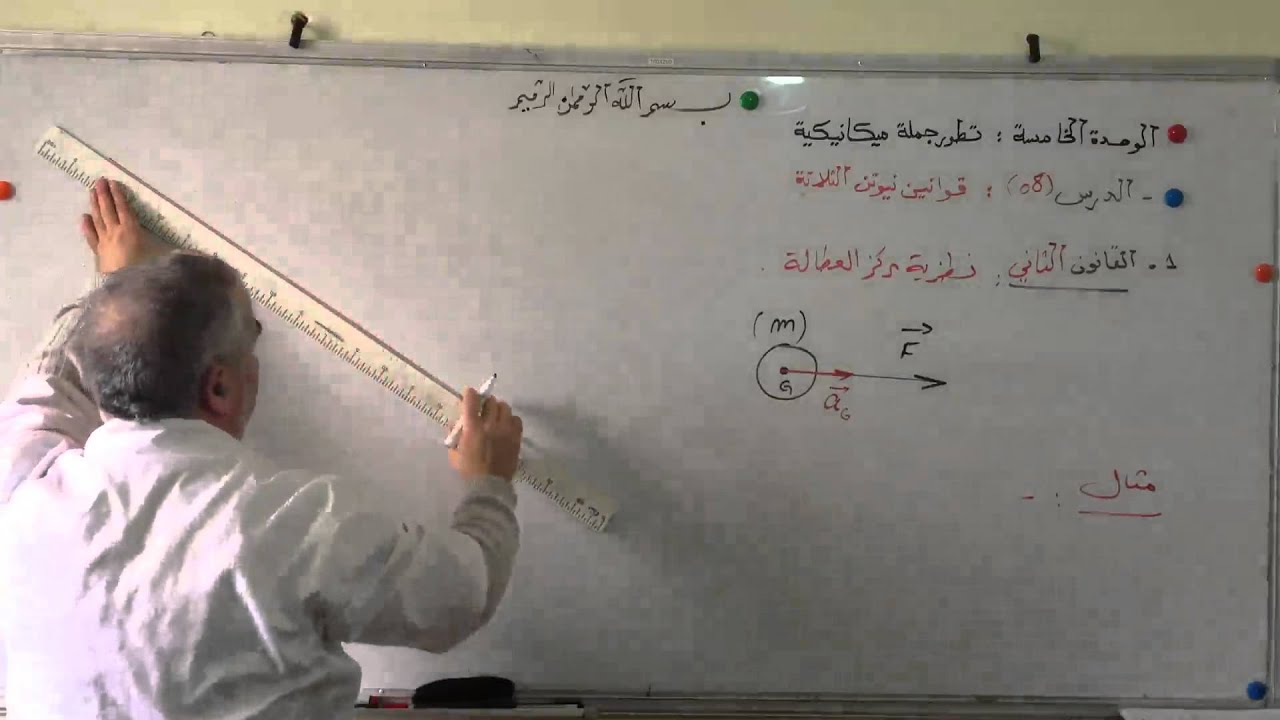 بسم الله الرحمن الرحيم
الوحدة الخامسة : تطور جملة ميكانيكية
- الدرس (08) : قوانين نيوتن الثلاثة
1. القانون الثاني : نظرية مركز العطالة .
(m)
F
G
a_G
مثال : -